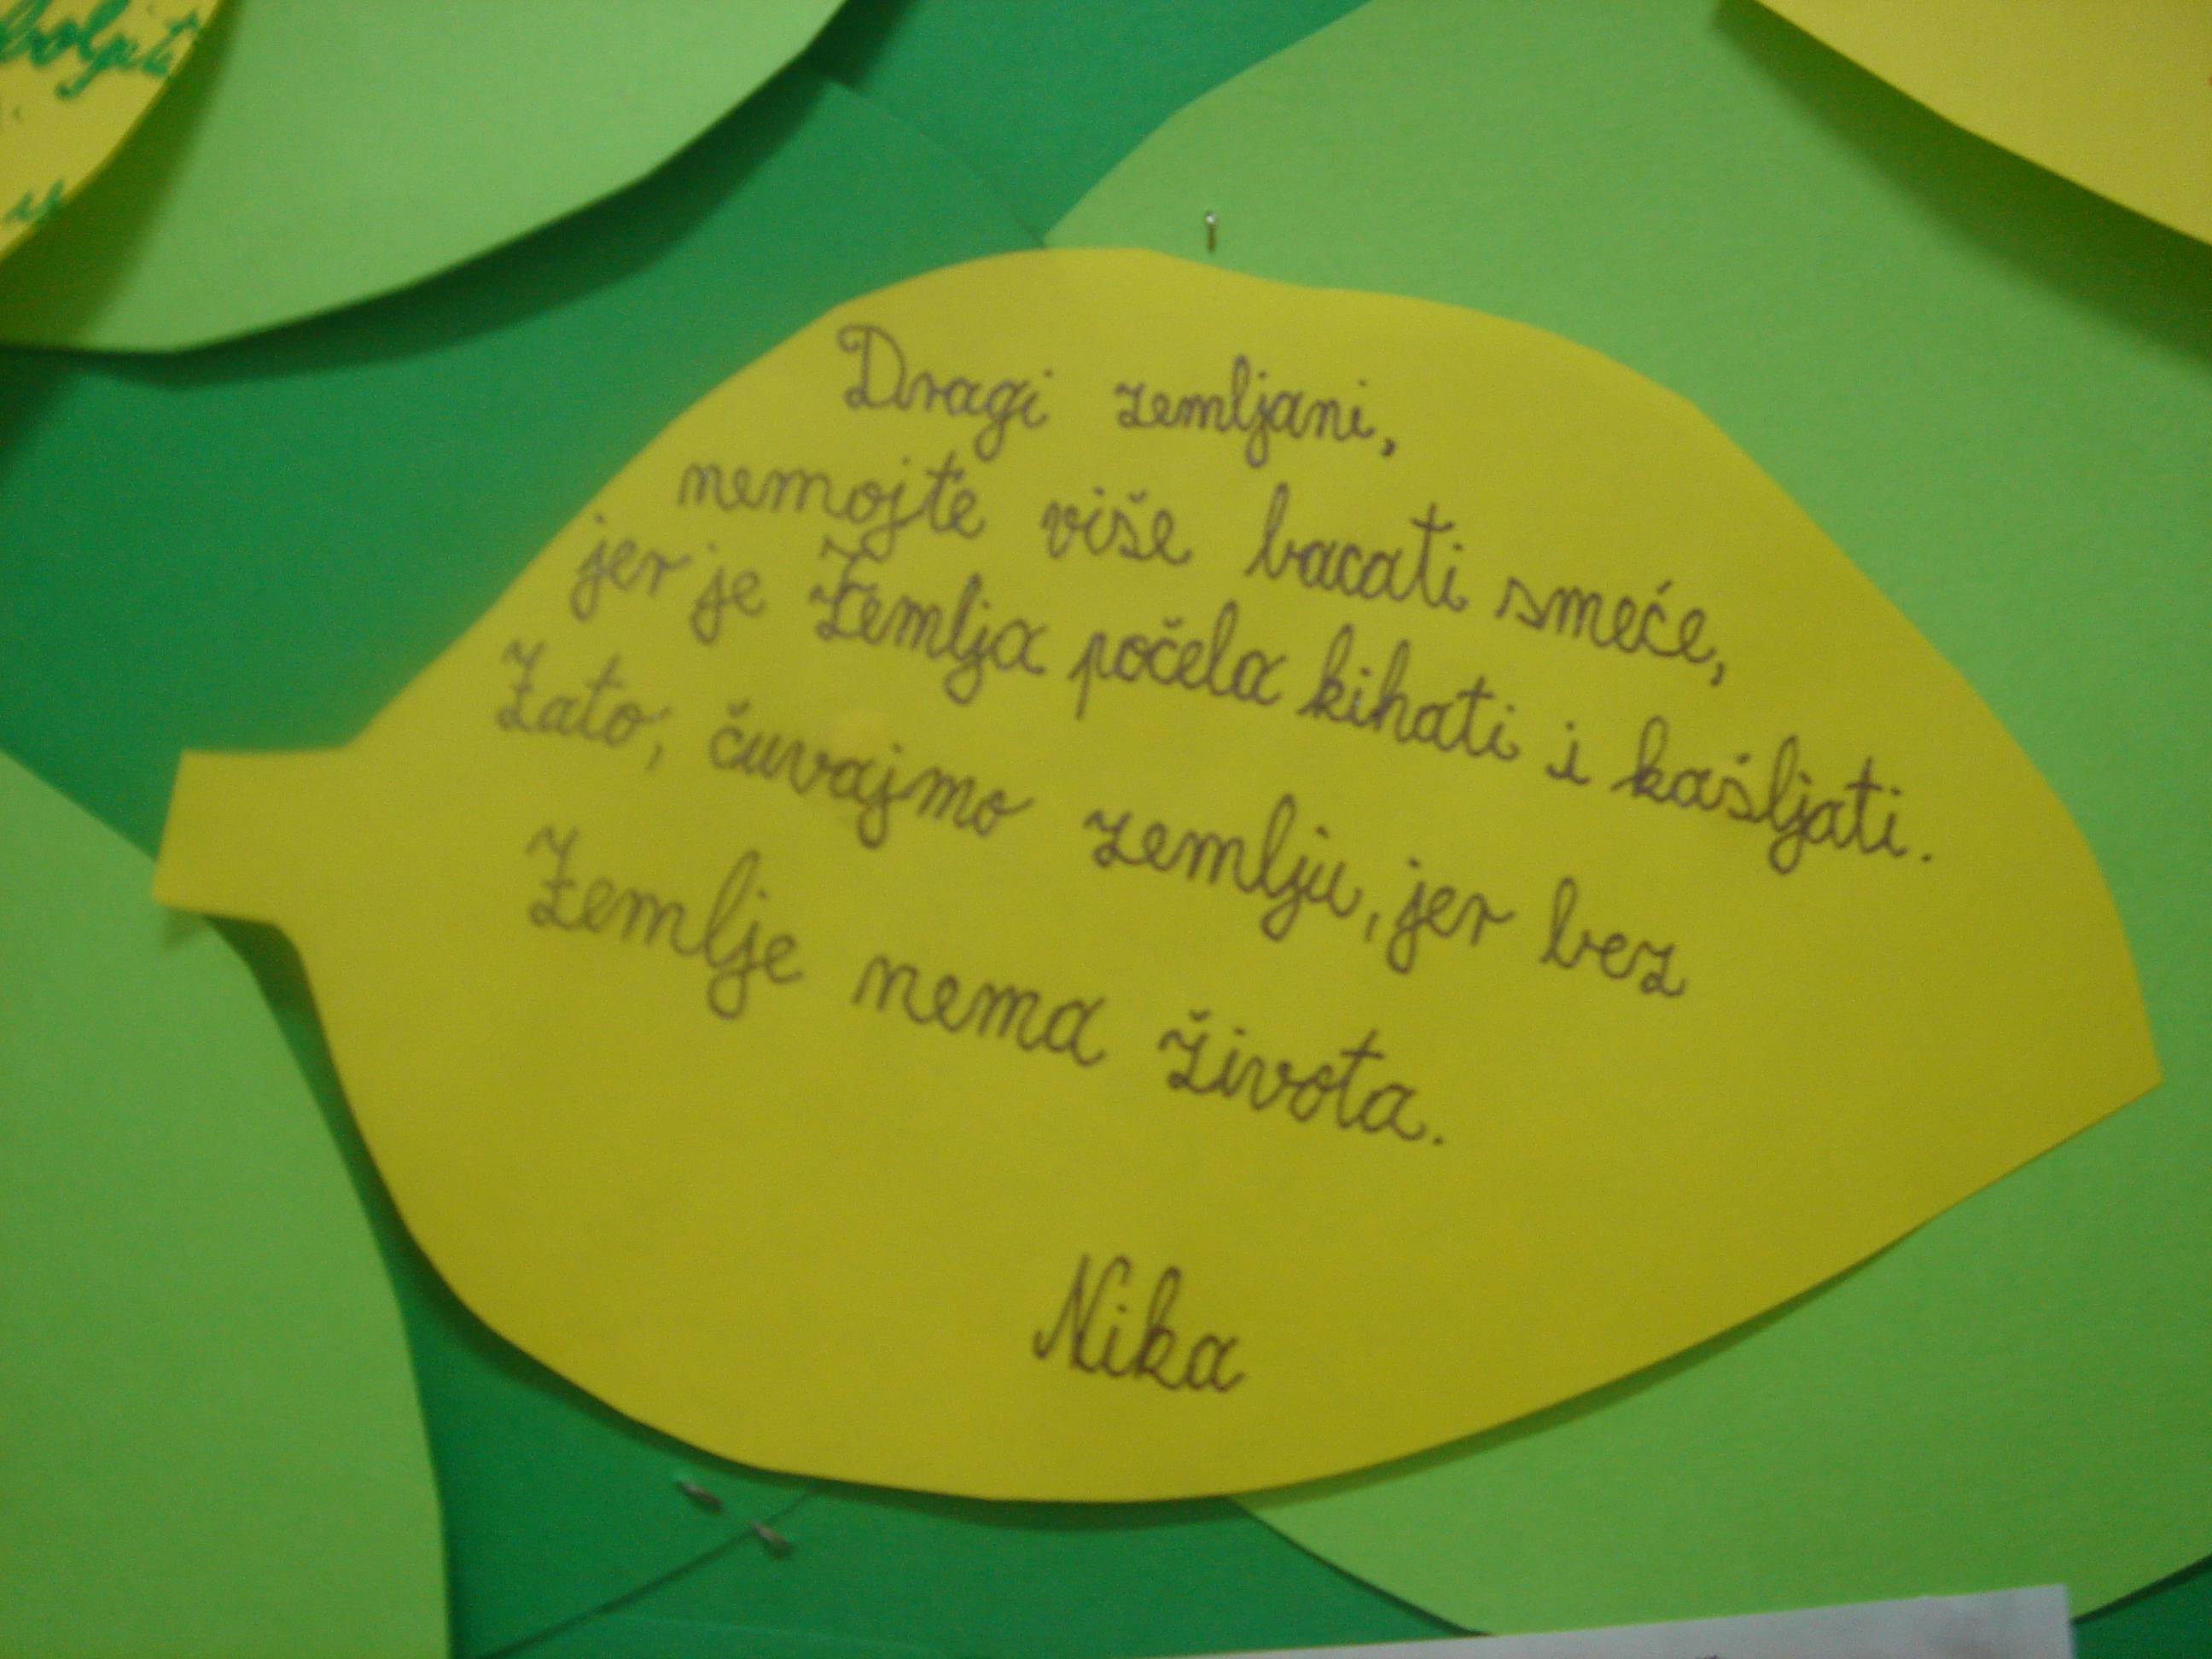 Dragi zemljani,
nemojte više bacati smeće,
jer je Zemlja počela kihati i kašljati.
Zato, čuvajmo zemlju, jer bez
Zemlje nema života.
Nika